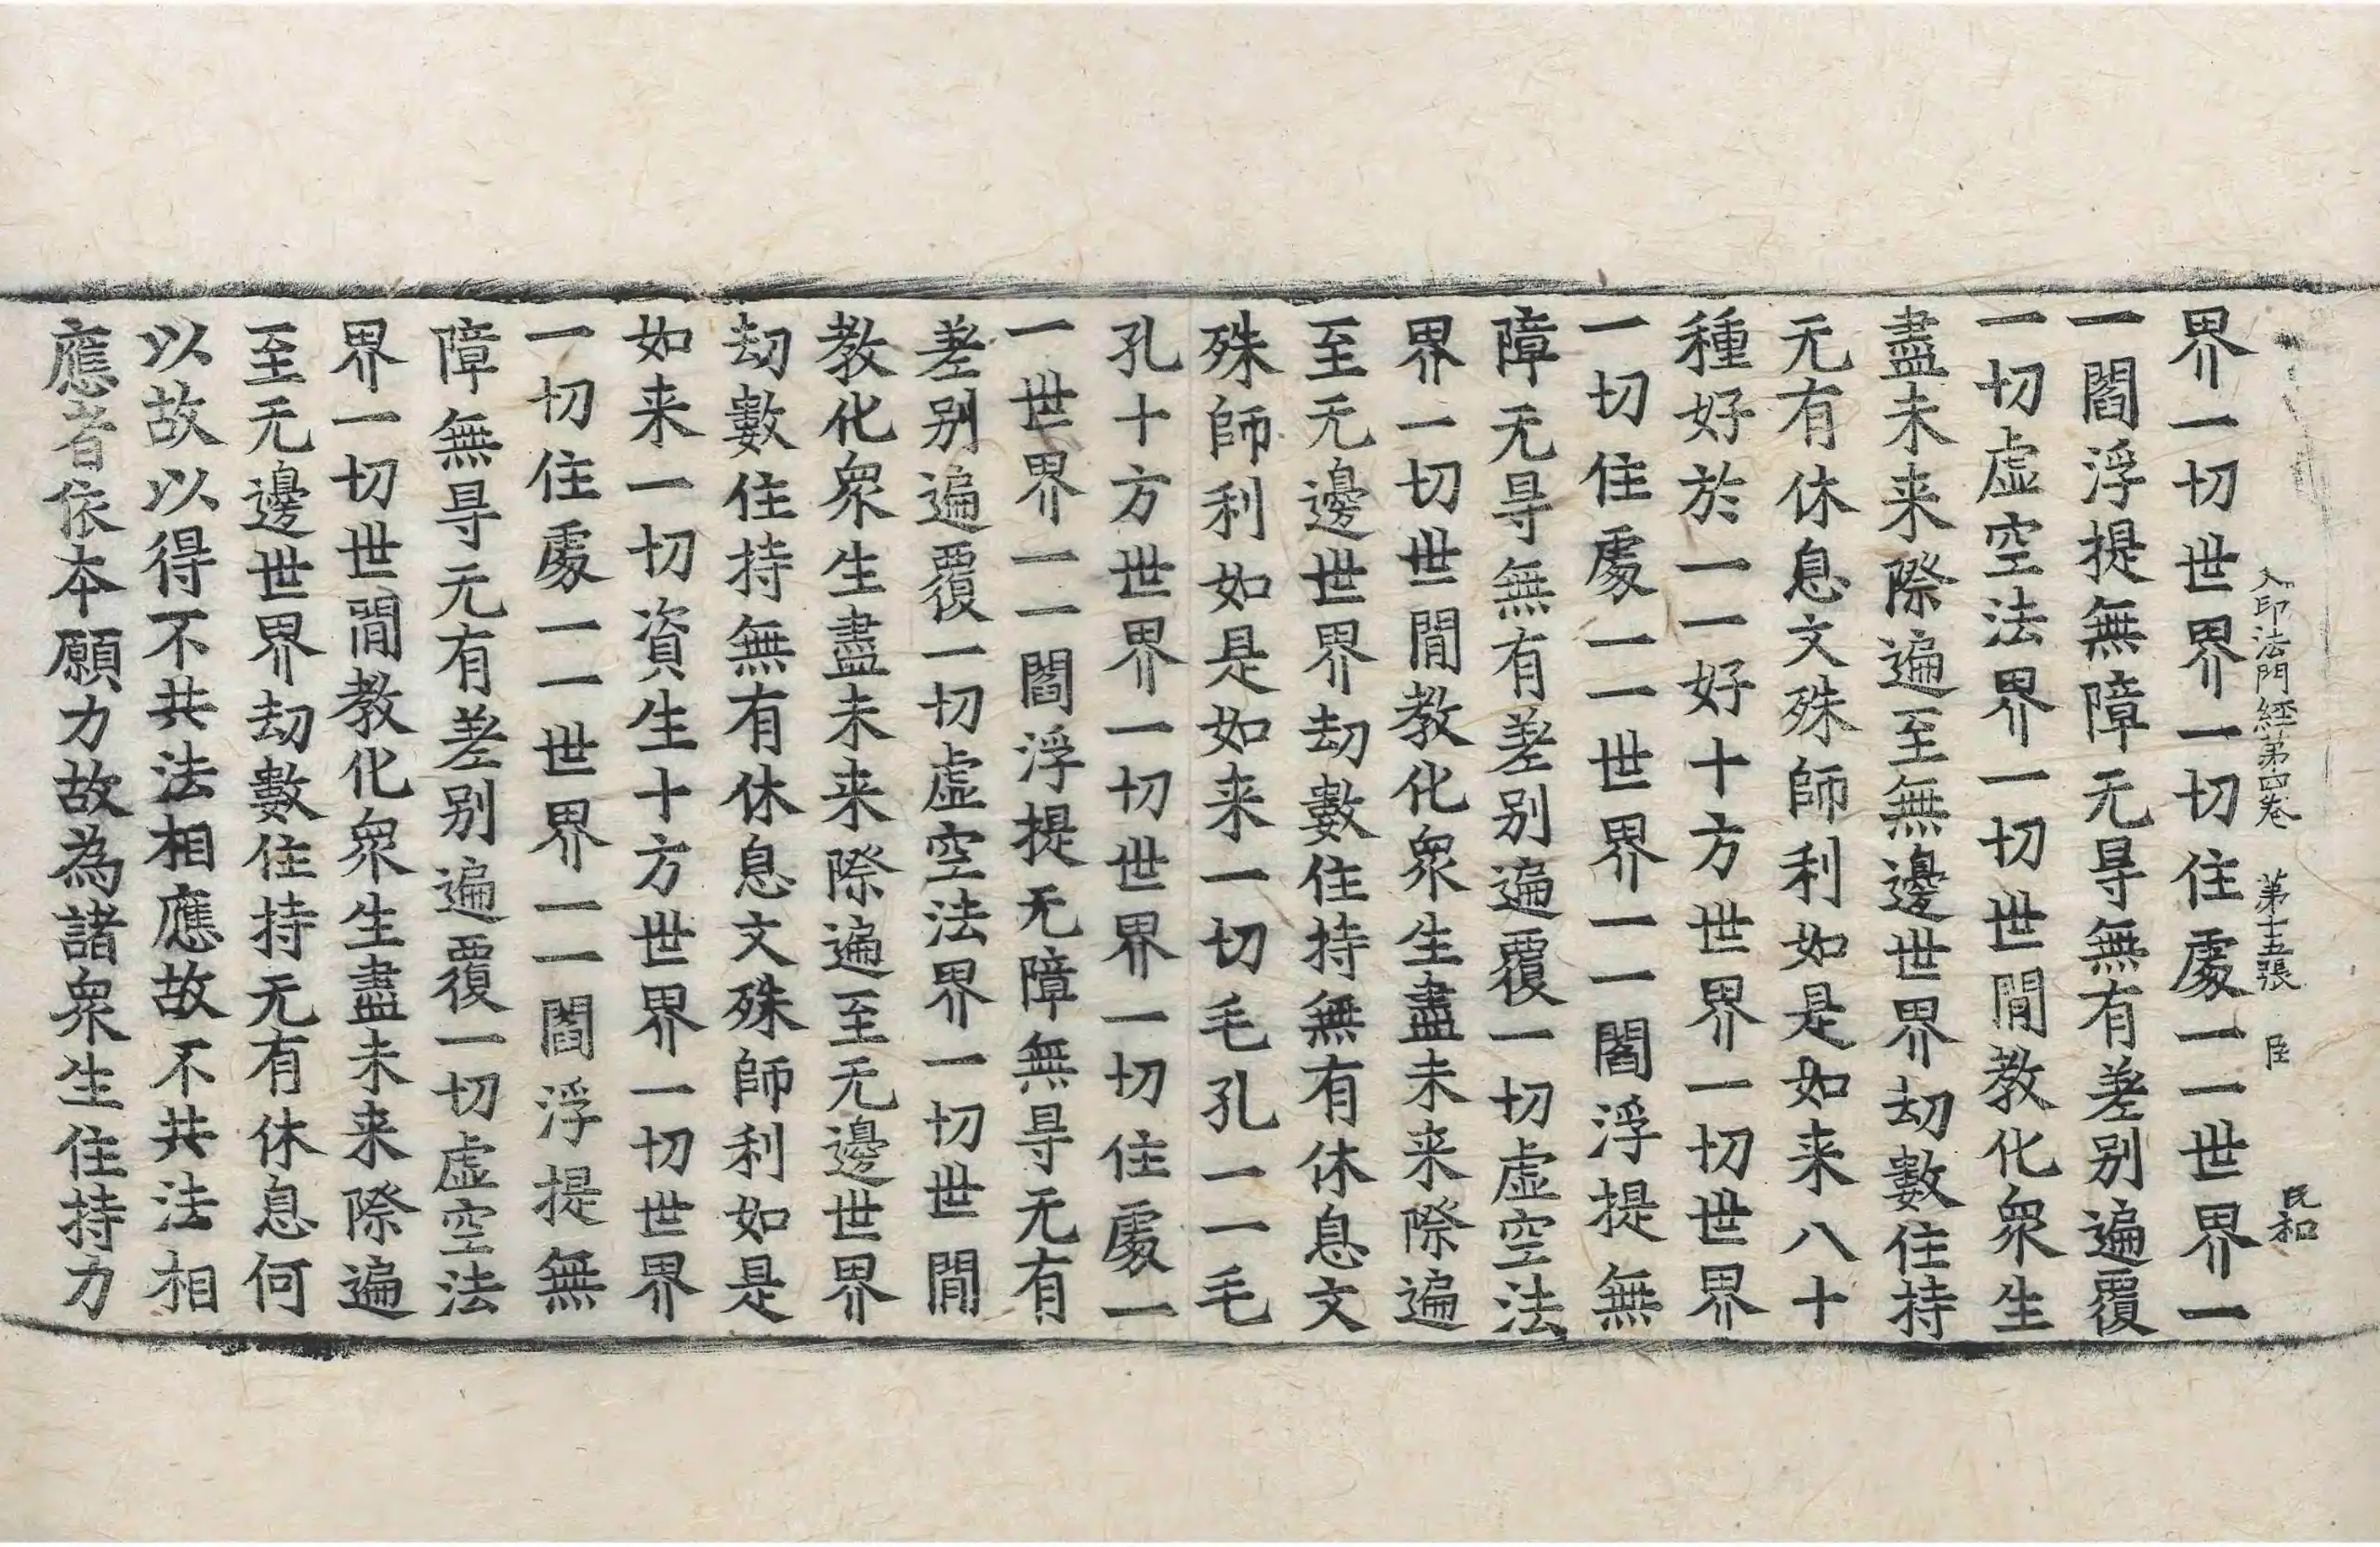 入印法門經第四卷 第十五張 臣 民和
界一切世界一切住處一一世界一
一閻浮提無障无㝵無有差别遍覆
一切虛空法界一切世間教化衆生
盡未来際遍至無邊世界劫數住持
无有休息文殊師利如是如来八十
種好於一一好十方世界一切世界
一切住處一一世界一一閻浮提無
障无㝵無有差别遍覆一切虛空法
界一切世間教化衆生盡未来際遍
至无邊世界劫數住持無有休息文
殊師利如是如来一切毛孔一一毛
孔十方世界一切世界一切住處一
一世界一一閻浮提无障無㝵无有
差别遍覆一切虛空法界一切世間
教化衆生盡未来際遍至无邊世界
劫數住持無有休息文殊師利如是
如来一切資生十方世界一切世界
一切住處一一世界一一閻浮提無
障無㝵无有差别遍覆一切虛空法
界一切世間教化衆生盡未来際遍
至无邊世界劫數住持无有休息何
以故以得不共法相應故不共法相
應者依本願力故為諸衆生住持力